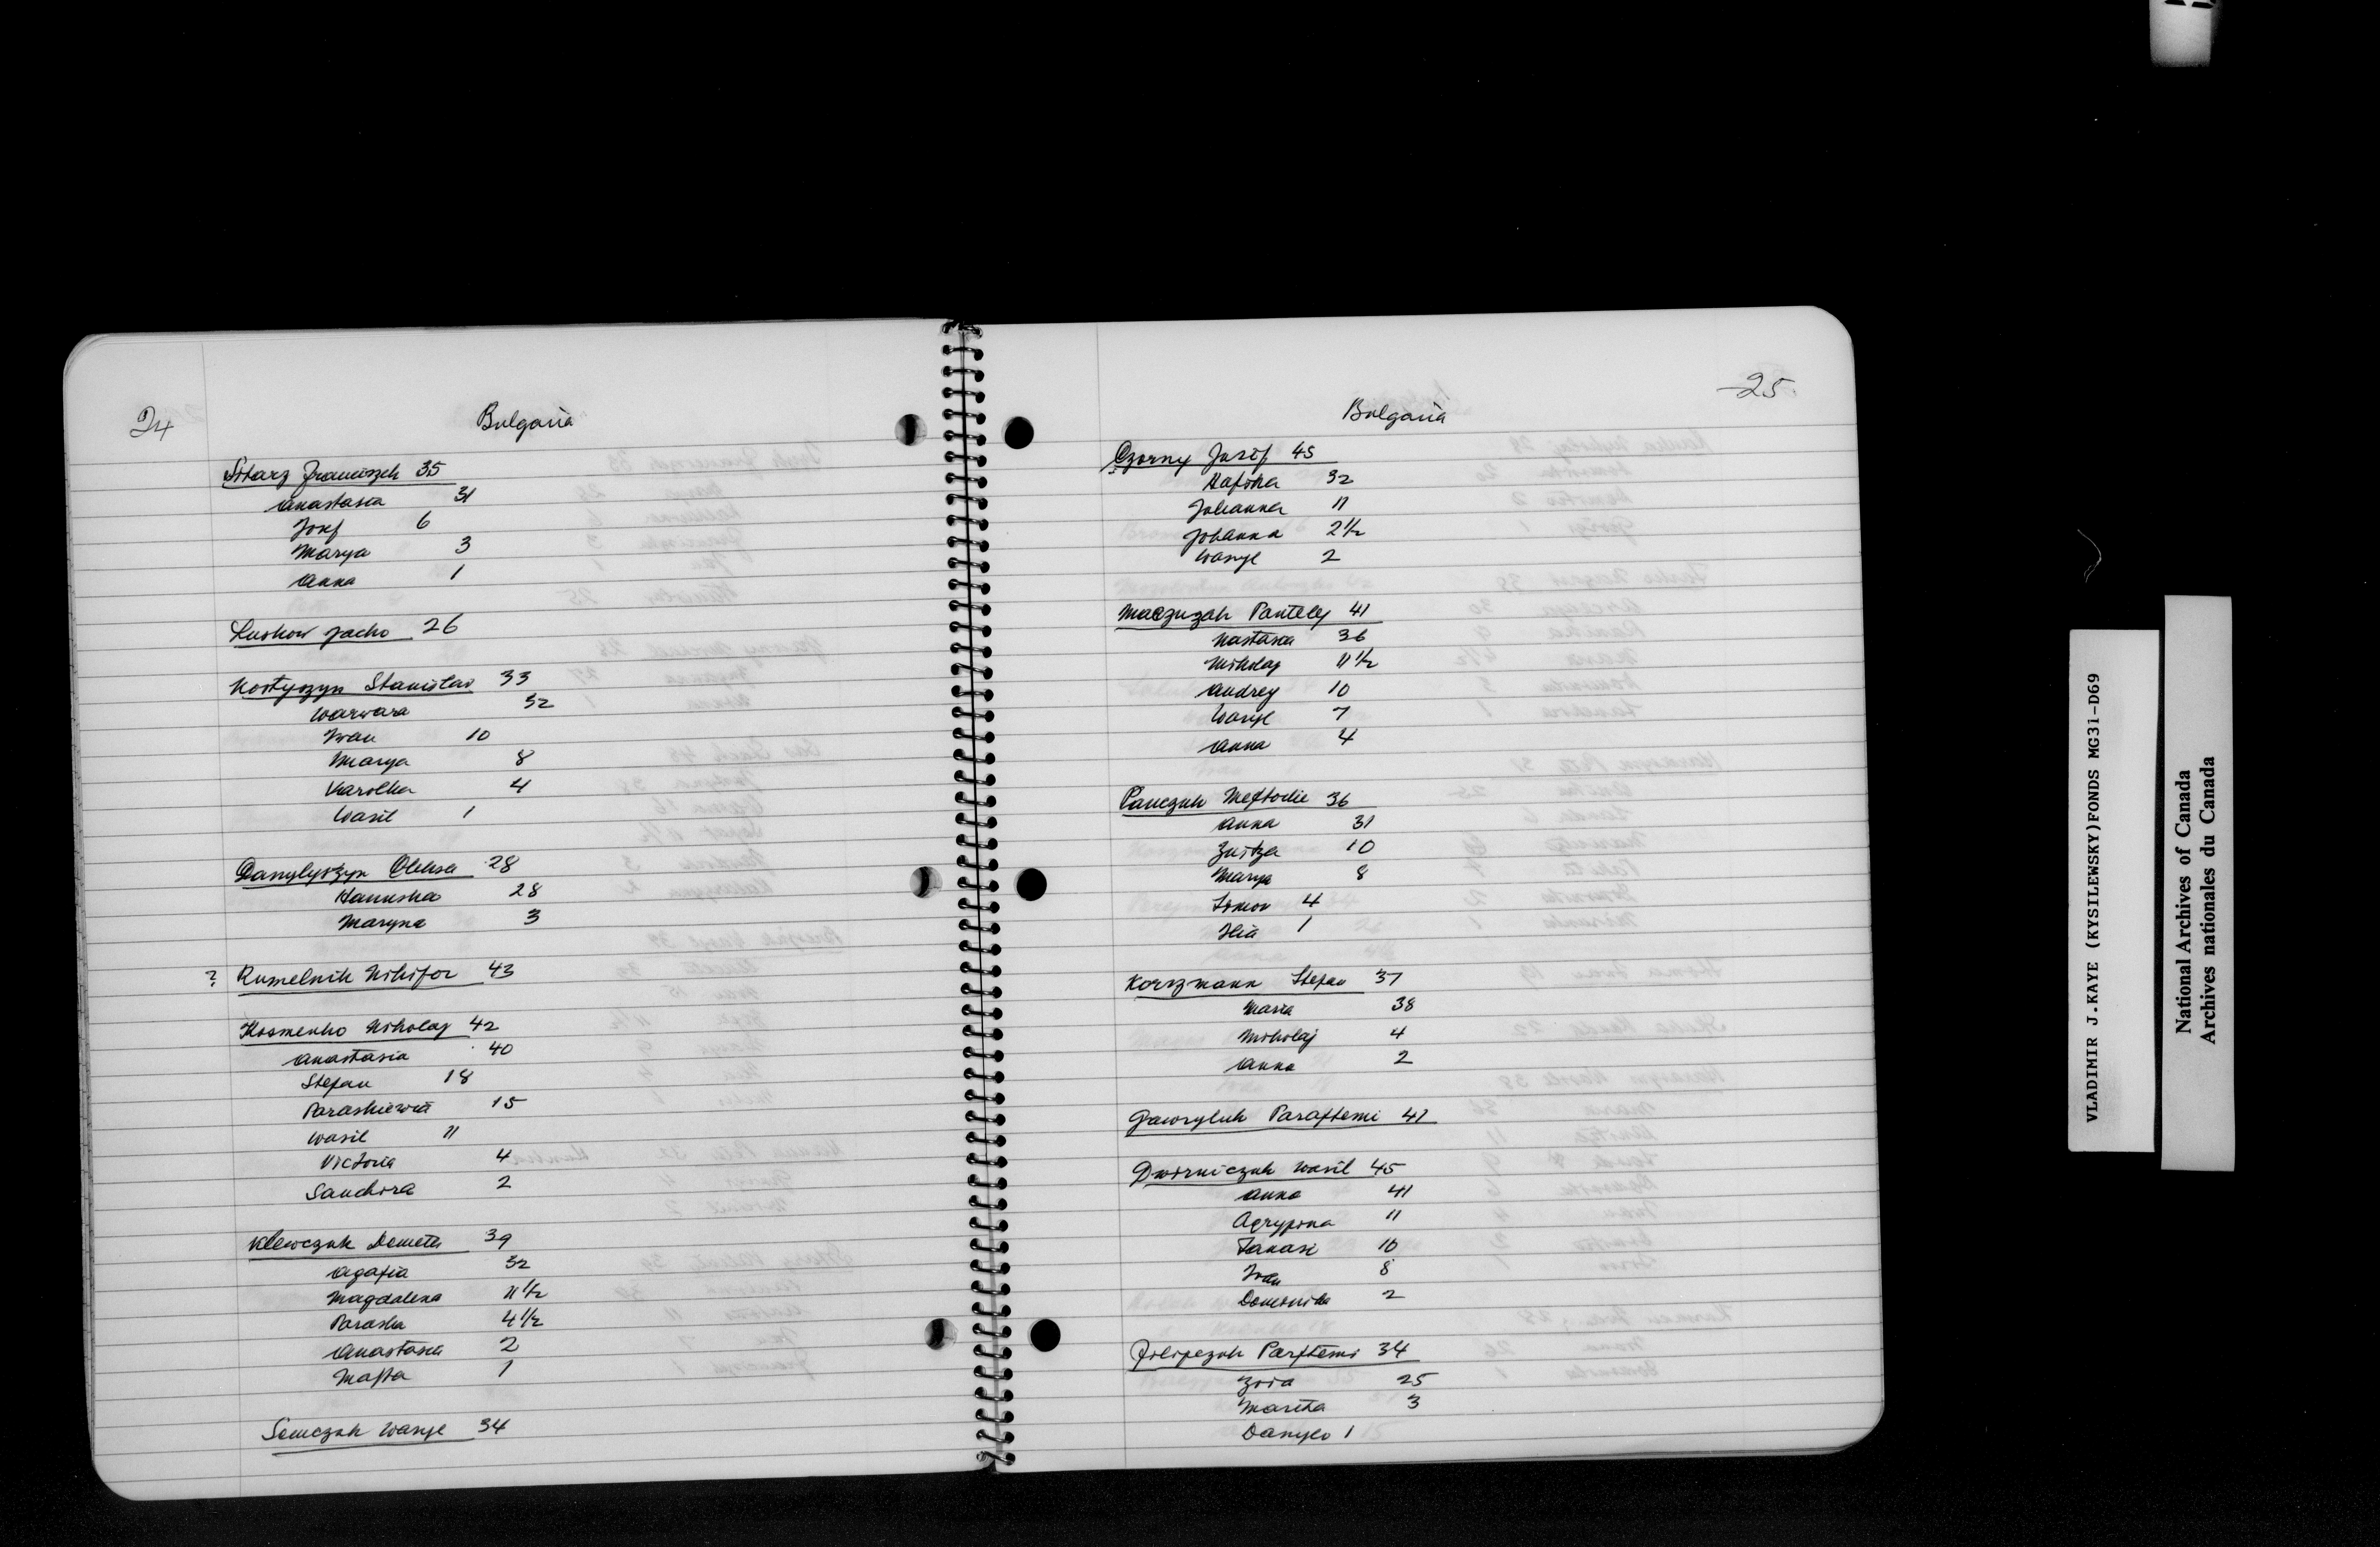 24
Bulgaria
Sitarz Franciszek 35
Anastasia 31
Josef 6
Marya 3
Anna 1
Luskow Jacko 26
Kostyszyn Stanislaw 33
Warwara 32
Iwan 10
Marya 8
Karolka 4
Wasil 1
Danylyszyn Oleksa 28
Hanuska 28
Maryna 3
? Rumelnik Nikifor 43
Kosmenko Nikolaj 42
Anastasia 40
Stefan 18
Paraskiewia 15
Wasil 11
Victoria 4
Sandora 2
Klewczuk Demeter 39
Agafia 32
Magdalena 11 1/2
Paraska 4 1/2
Anastasia 2
Mafta 1
Semczuk Wasyl 34
25
Bulgaria
Czorny Jusif 45
Hafika 32
Johanna 11
Johanna 2 1/2
Wasyl 2
Maczuzak Panteley 41
Nastasia 36
Nikolaj 11 1/2
Andrey 10
Wasyl 7
Anna 4
Panczuk Meftodie 36
Anna 31
Zuitza 10
Marya 8
Simon 4
Ilia 1
Korszmann Stefan 37
Maria 38
Nikolaj 4
Anna 2
Gawryluk Paraftemi 41
Dworniczuk Wasil 45
Anna 41
Agrypina 11
Tanasi 10
Iwan 8
Domonika 2
Filipczuk Parftemi 34
Zoia 25
Maritha 3
Danylo 1
VLADIMIR J.KAYE (KYSILEWSKY)FONDS MG31-D69
National Archives of Canada
Archives nationales du Canada